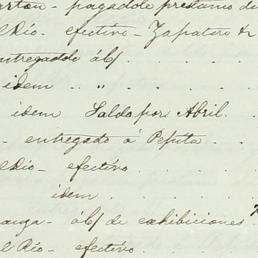 arton - pagadole prestamo de
el Rio. efectivo - Zapatero &
entregadole ál/
idem " "
idem Saldo por Abril.
- entregado á Pepita
el Rio - efectivo
idem
anga - ál/ de exhibiciones
el Rio - efectivo.